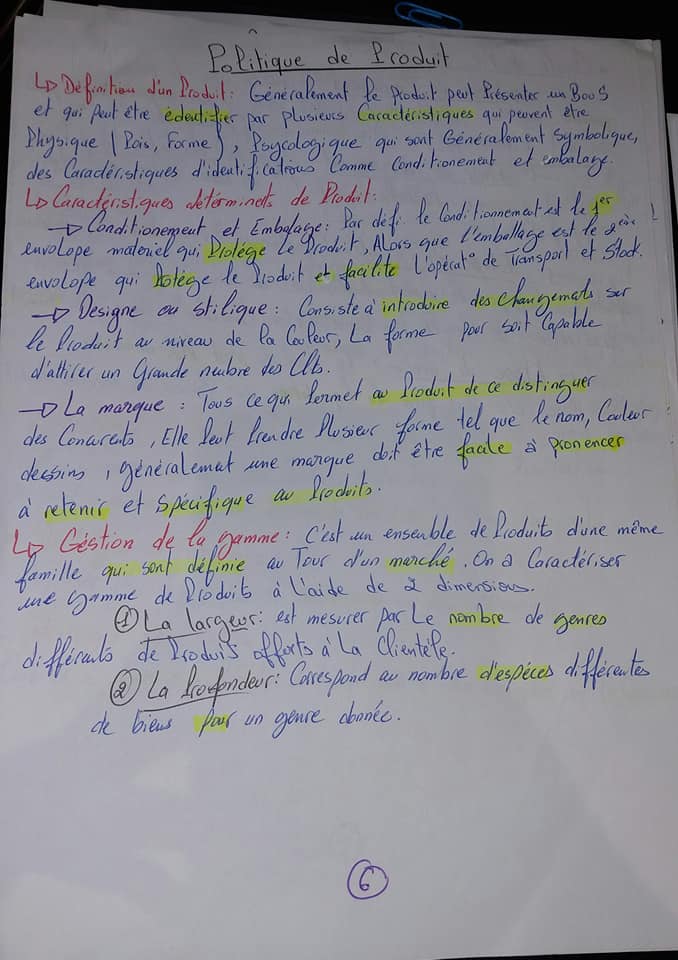 Politique de Produit
↳ Définition d'un Produit: Généralement le Produit peut Présenter un BouS
et qui Peut être édentifier par plusieurs Caractéristiques qui peuvent être
Physique (Pois, Forme), Psycologique qui sont Généralement Symbolique,
des Caractéristiques d'identifications Comme conditionement et embalage.
↳ Caractéristiques détérminots de Produit:
→ Conditionement et Embalage: Par défi. le Conditionnement est le 1er
envelope materiel qui Protége le Produit, Alors que l'emballage est le 2ème
envelope qui Protége le Produit et facilite l'opérat° de Transport et Stock.
→ Designe ou Stilique: Consiste à introduire des changements sur
le Produit au niveau de la Couleur, La forme pour soit Capable
d'attirer un Grande nombre des Clts.
→ La marque: Tous ce qui Permet au Produit de ce distinguer
des Concurents, Elle Peut Prendre Plusieur forme tel que le nom, Couleur
dessins, généralement une marque doit être facile à prononcer
à retenir et Spécifique au Produits.
↳ Géstion de la gamme: C'est un ensemble de Produits d'une même
famille qui sont définie au Tour d'un marché. On a Caractériser
une gamme de Produits à L'aide de 2 dimensions.
① La largeur: est mesurer par Le nombre de genres
différents de Produits offerts à La Clientéle.
② La Profondeur: Correspond au nombre d'espéces différentes
de biens pour un genre donnée.
6